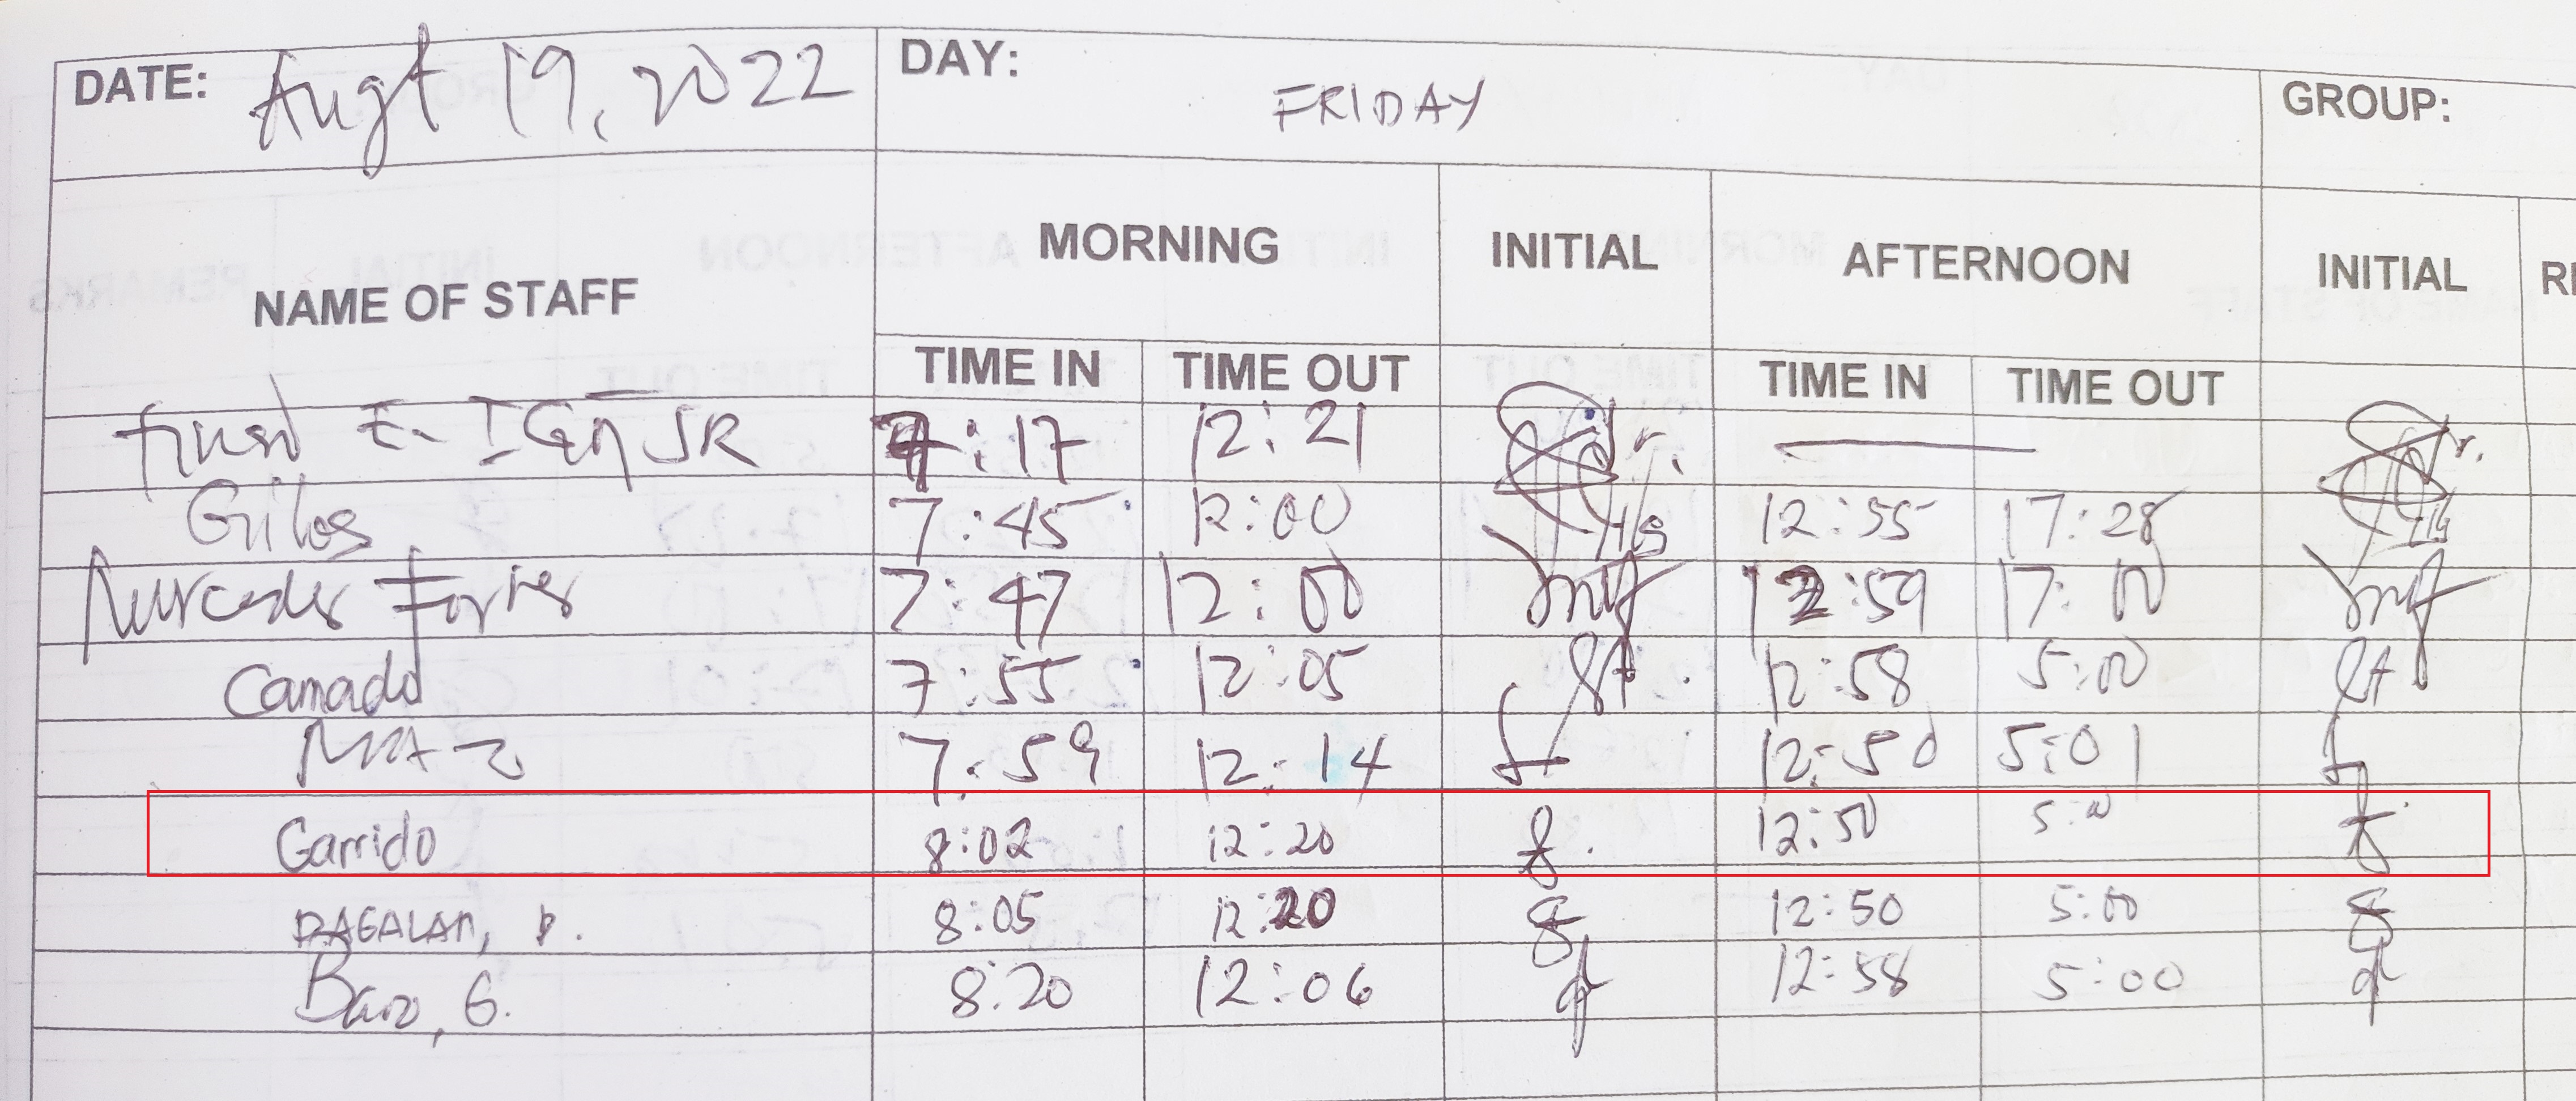 DATE: Augt 19, 2022 DAY: FRIDAY GROUP:
NAME OF STAFF MORNING INITIAL AFTERNOON INITIAL
TIME IN TIME OUT TIME IN TIME OUT
E. IGOT JR 7:17 12:21
Gilos 7:45 12:00 HG 12:55 17:28 HG
Mercedes Forres 7:47 12:00 mf 12:59 17:00 mf
Canado 7:55 12:05 12:58 5:00
7:59 12:14 12:50 5:01
Garrido 8:02 12:20 12:50 5:00
DAGALAN, D. 8:05 12:20 12:50 5:00
Baro, G. 8:20 12:06 12:58 5:00